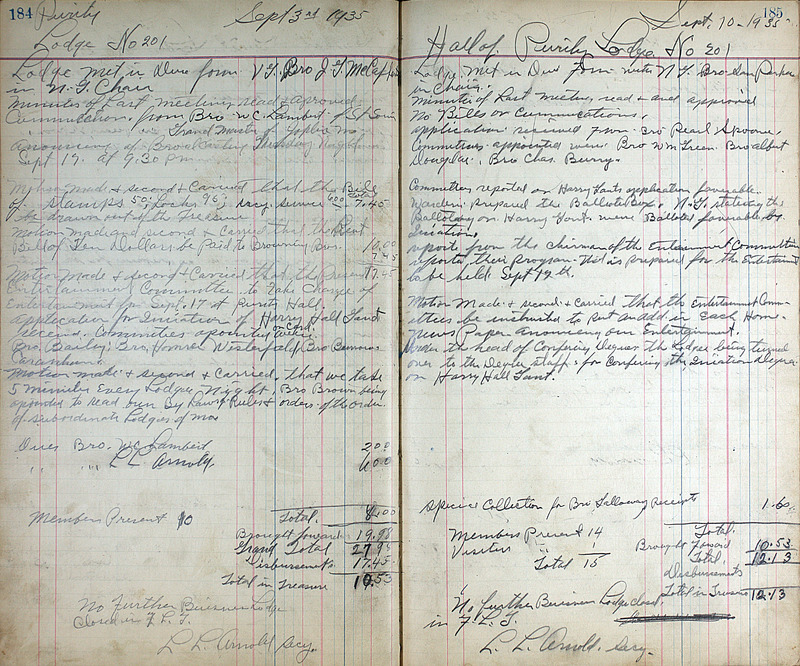 184 Purity Sept 3rd 1935
Lodge No 201
Lodge met in Due form V.G. Bro J.T.
in N.G. Chair
Minutes of Last meeting read & aproved.
from Bro W.C. Lambert of St
Grand Master of
anouncing of Broadcasting Thursday
Sept 19. at 9:30 P.m.
Motion made & second & Carried that the Bill
of Stamps 50; Locks 95; Service 600 7.45
be drawn out of the Treasure
Motion made and second & Carried that the
Bill of Ten Dollars be Paid to Browning Bros. 10.00
7.45
Motion Made & second & Carried that the Present 17.45
Entertainment Committee to take Charge of
Entertainment for Sept. 17 at Purity Hall.
application for Initiation of Harry Hall
received. Committies apointed
on Card.
Bro. Bailey; Bro. Homer Westerfield, Bro
Motion made & second & Carried. that we take
5 Minutes Every Lodge Night. Bro Brown being
apointed to read our By Laws & Rules & orders of the order.
of Subordinate Lodges of Mo
Dues Bro. W.C. Lambert 2.00
" " L L Arnold 6.00
Members Present 10 Total. 8.00
Brought forward 19.98
Grand Total 27.98
Disbursements 17.45
Total in Treasure 10.53
No Further Business Lodge
Closed in F. L. T.
L. L. Arnold Secy.
Sept. 10-1935 185
Hall of Purity Lodge No 201
Lodge Met in Due Form with N.G. Bro
in Chair.
Minutes of Last meeting read and approved
No Bills or Communications.
application received from Bro Pearl Spoone.
Committies appointed were Bro Wm Green. Bro albert
Douglas. Bro Chas. Berry.
Committies reported on Harry application favorable.
Warden Prepared the Ballot Box, N.G. stating the
Balloting on Harry were Balloted favorable by
Initiation
reports from the chairman of the Entertainment Committee
reported their Program that is prepared for the Entertainment
to be held Sept 17th.
Motion Made & second & carried that the Entertainment Comm-
ittees be instructed to Put an add in Each Home
News Paper anouncing our Entertainment.
Under the head of Confering Degrees the Lodge being turned
over to the Degree staff; for Confering the Initiation Degree
on Harry Hall
Special Collection for Bro Galloway Receipts 1.60
Members Present 14 Total.
Visitors " 1 Brought Forward 10.53
Total 15 Total. 12.13
Disbursments
Total in Treasure 12.13
No further Business Lodge closed
in F. L. T.
L. L. Arnold. Secy.